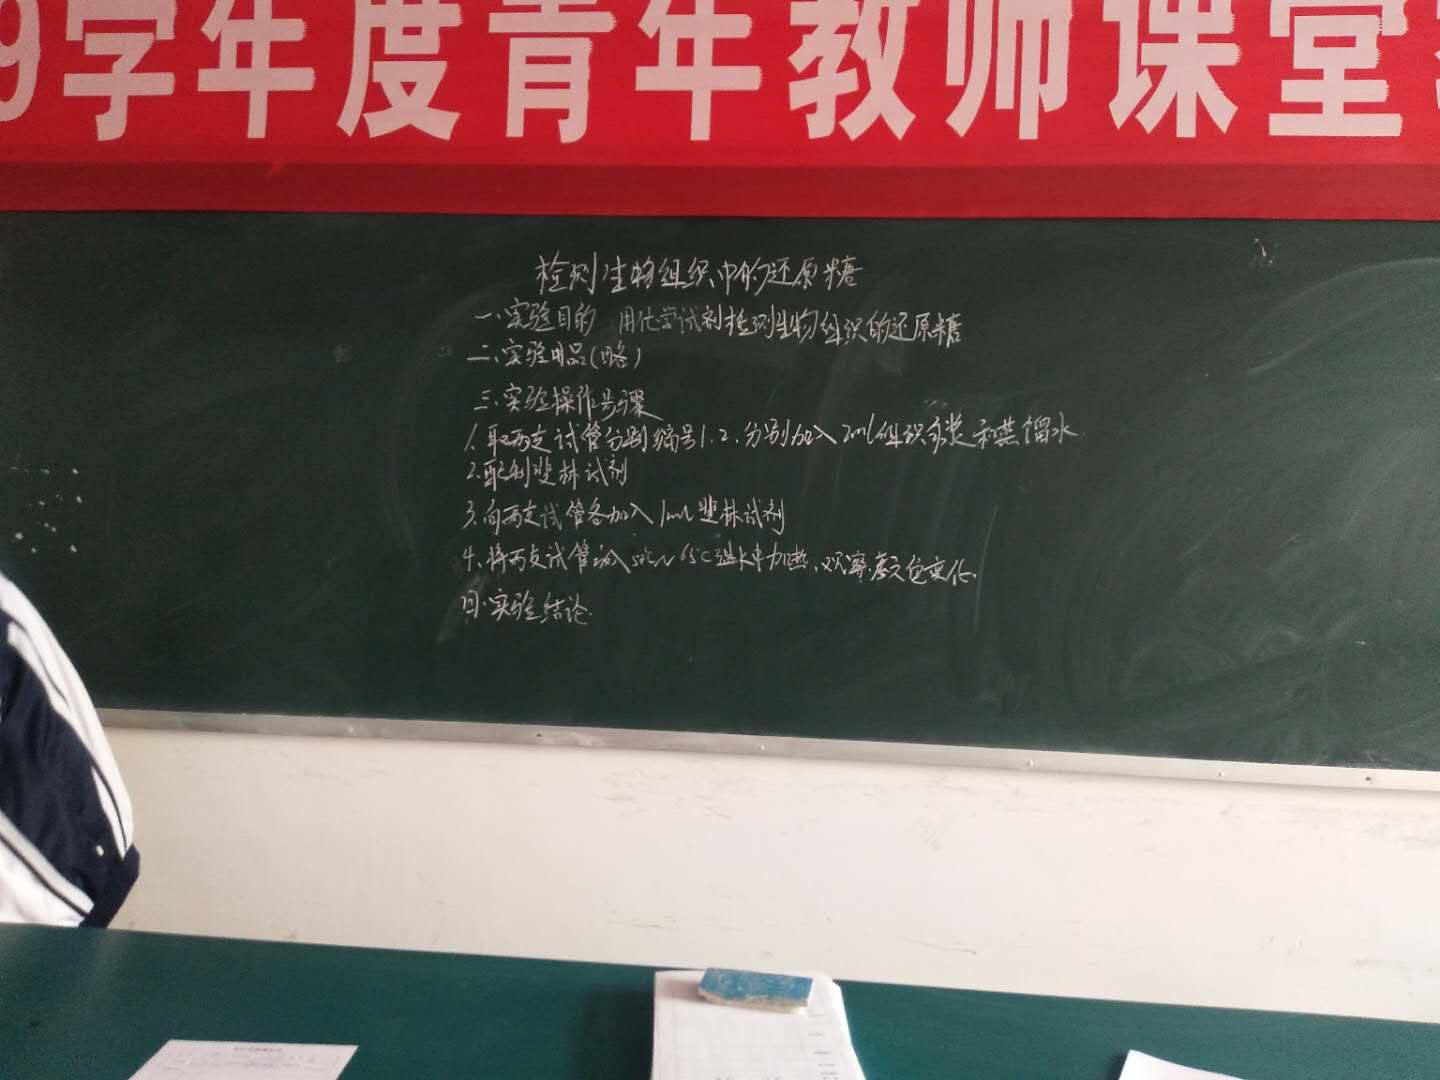 9学年度青年教师课堂
检测生物组织中的还原糖
一、实验目的 用化学试剂检测生物组织的还原糖
二、实验用品(略)
三、实验操作步骤
1.取两支试管分别编号1.2.分别加入2ml组织样浆和蒸馏水
2.配制斐林试剂
3.向两支试管各加入1ml斐林试剂
4、将两支试管放入50℃~65℃温水中加热,观察颜色变化.
四.实验结论.